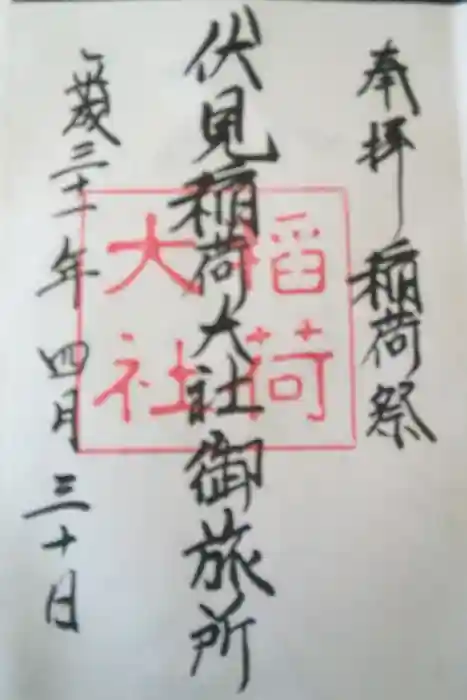 奉拝 稲荷祭
伏見稲荷大社御旅所
稲荷
大社
平成三十一年 四月 三十日